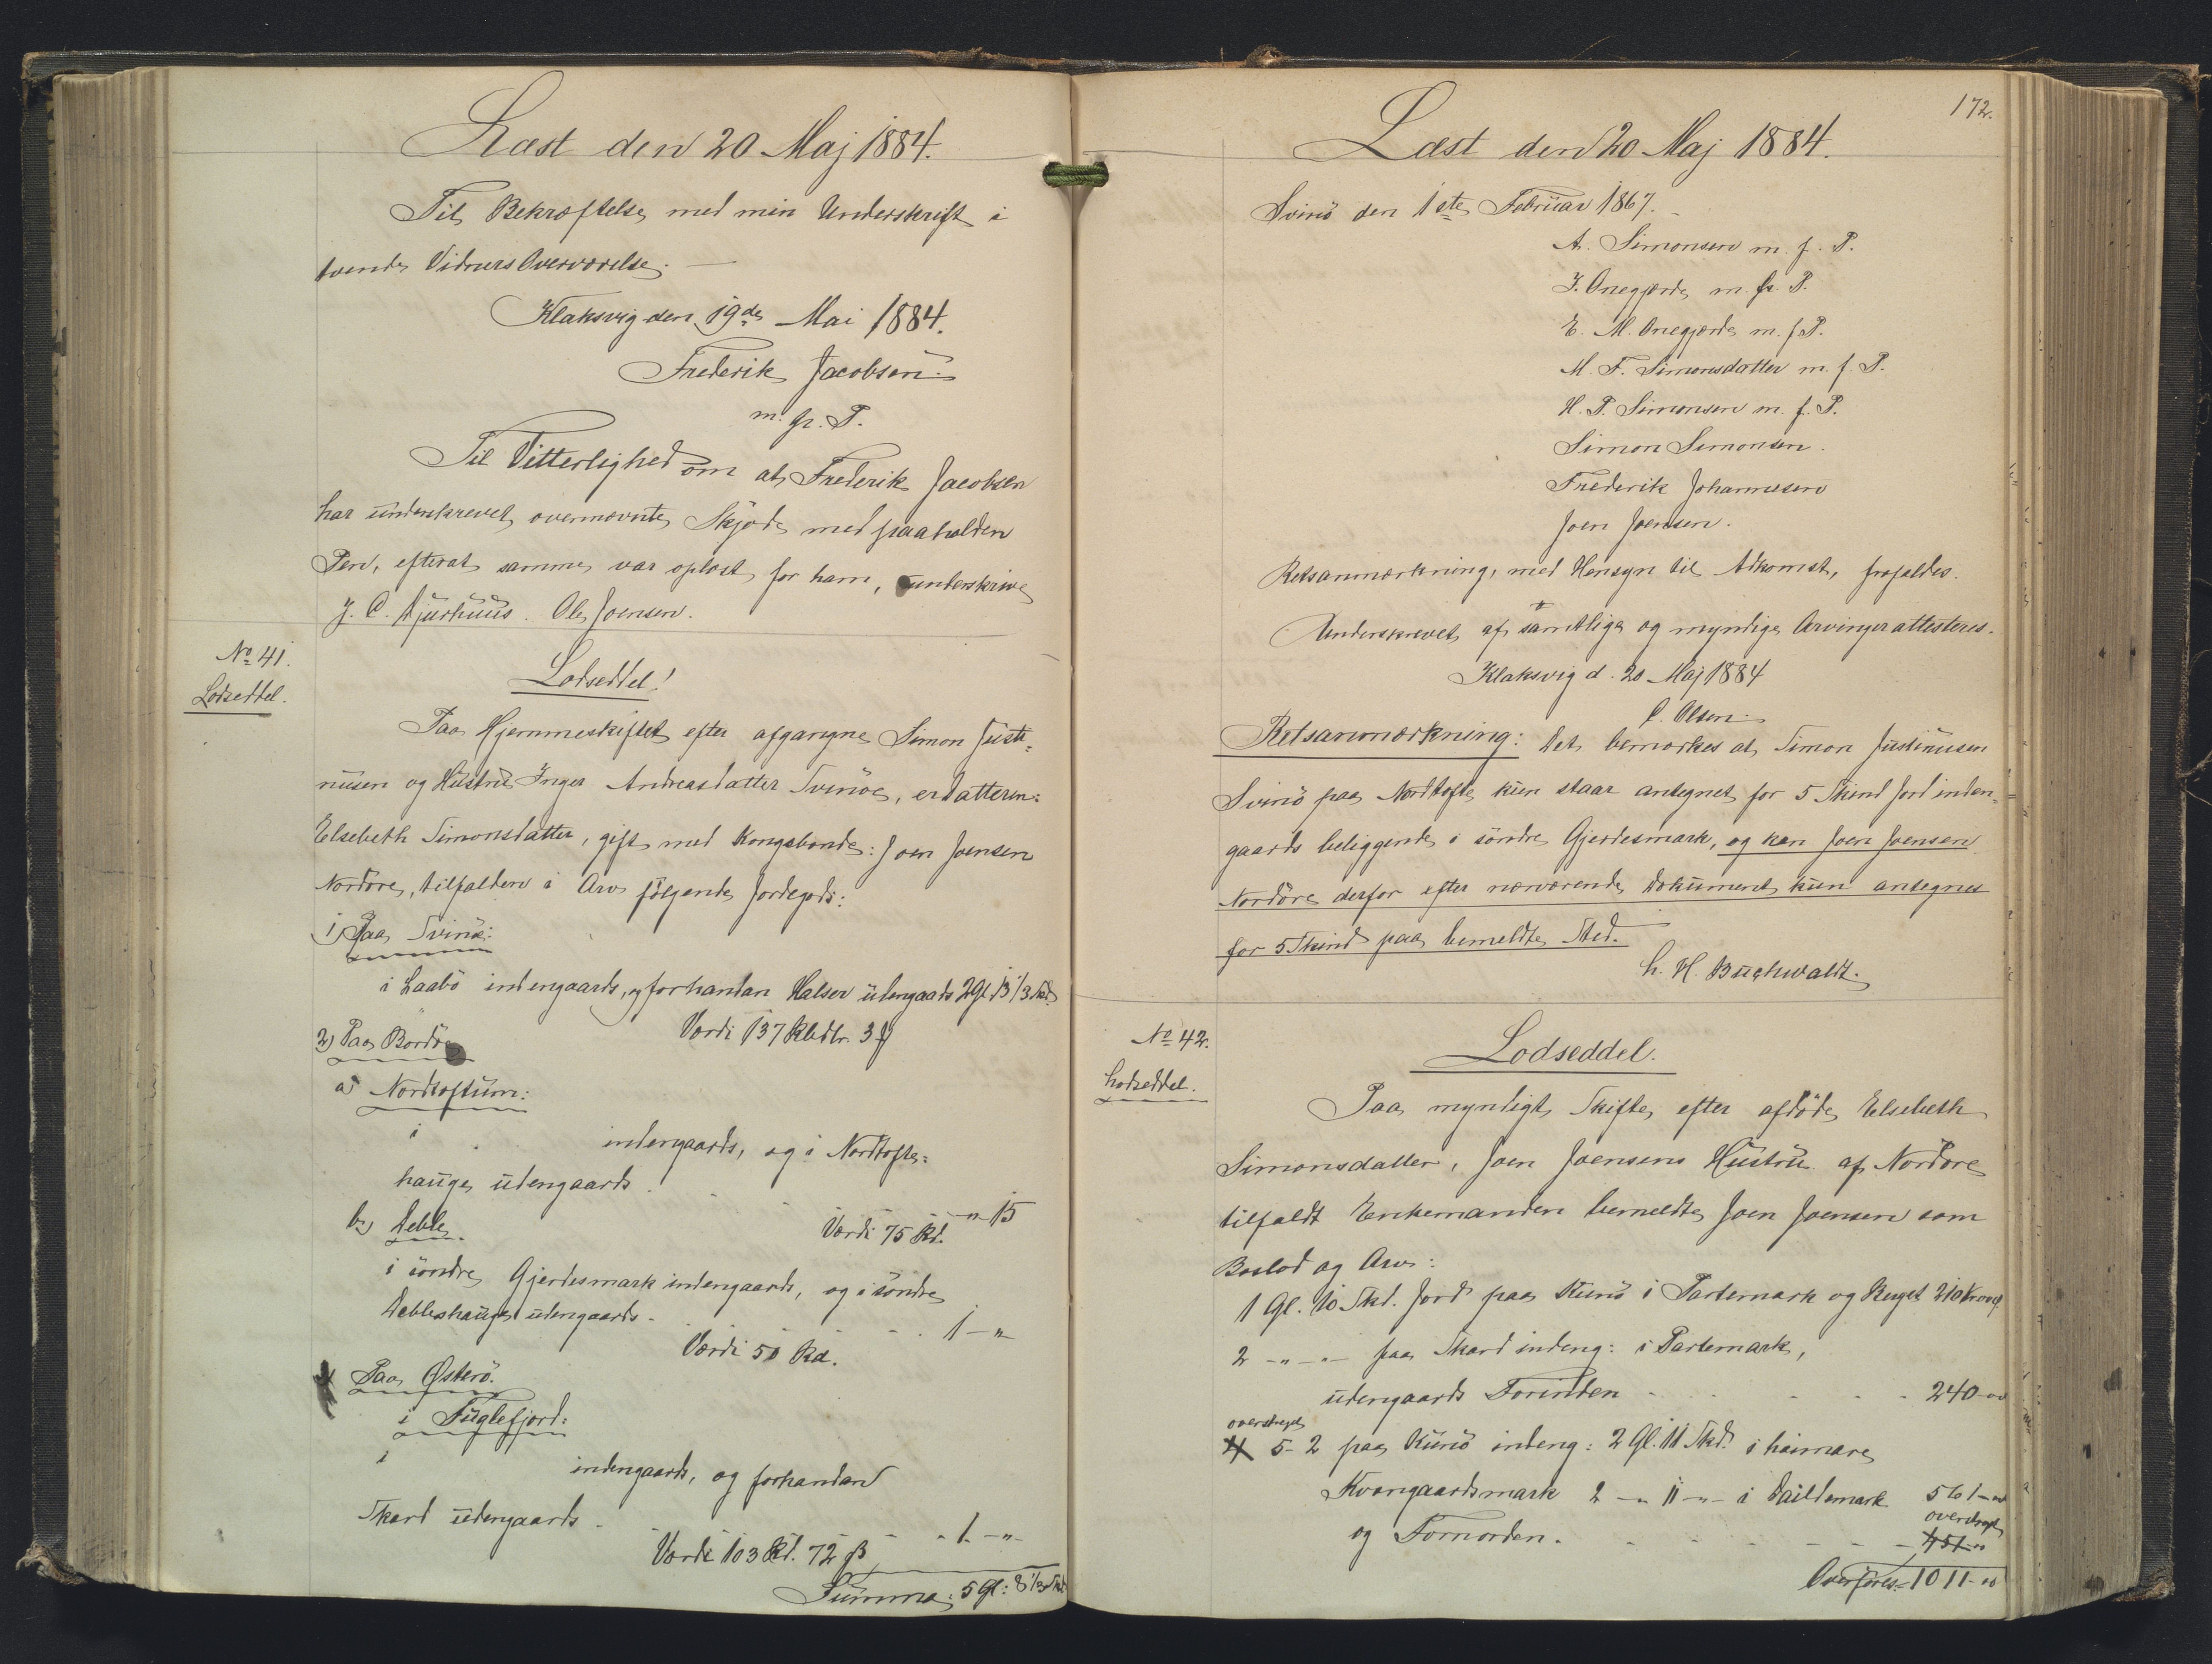 Læst den 20 Maj 1884.
Til Bekræftelse med min Underskrift i
tvende Vidners Overværelse. —
Klaksvig den 19de Mai 1884.
Frederik Jacobsen
m. fr. P.
Til Vitterlighed om at Frederik Jacobsen
har underskrevet ovennævnte Skjøde med paaholden
Pen, efterat samme var oplæst for ham, underskrive
J. C. Djurhuus. Ole Joensen.
No 41.
Lodseddel.
Lodseddel!
Paa Hjemmeskiftet efter afgangne Simon Justi-
nusen og Hustru Inger Andreasdatter Svinöe, er Datteren:
Elsebeth Simonsdatter, gift med Kongsbonde: Joen Joensen
Nordöre, tilfalden i Arv følgende Jordegods:
1) Paa Svinö:
i Laabö indengaards, og forhandan Halsen udengaards 2 Gl. 13 1/3 Skd.
Værdi 137 Rbdlr. 3 ß
2) Paa Bordö
a) Nordtoftum:
i indengaards, og i Nordtofte-
hauge udengaards . - - - " 15
Værdi 75 Rd.
b) Deble.
i söndre Gjerdesmark indengaards, og i söndre
Debleshauge udengaards - - - 1 - "
Værdi 50 Rd.
3) Paa Østerö.
i Fuglefjord:
i indengaards, og forhandan
Skard udengaards - - - 1 - "
Værdi 103 Rd. 72 ß
Summa: 5 Gl: 8 1/3 Skd.
172.
Læst den 20 Maj 1884.
Svinö den 1ste Februar 1867.
A. Simonsen m. f. P.
J. Onegjerde m. fr. P.
E. M. Onegjerde m. f. P.
M. F. Simonsdatter m. f. P.
H. P. Simonsen m. f. P.
Simon Simonsen.
Frederik Johannesen
Joen Joensen.
Retsanmærkning, med Hensyn til Adkomst, frafaldes.
Underskrevet af samtlige og myndige Arvinger attesteres.
Klaksvig d. 20 Maj 1884
C. Olsen.
Retsanmærkning: Det bemærkes at Simon Justinusen
Svinö paa Nordtofte kun staar antegnet for 5 Skind Jord inden-
gaards beliggende i söndre Gjerdesmark, og kan Joen Joensen
Nordöre derfor efter nærværende Dokument kun antegnes
for 5 Skind paa bemeldte Sted.
C. H. Buchwaldt.
No 42.
Lodseddel.
Lodseddel.
Paa myndigt Skifte efter afdöde Elsebeth
Simonsdatter, Joen Joensens Hustru af Nordöre
tilfaldt Enkemanden bemeldte Joen Joensen som
Boslod og Arv:
1 Gl. 10 Skd. Jord paa Kunö i Partemark og Ruget 210 Kroner
2 - " - " - paa Skard indeng: i Partemark,
udengaards Forinden - - - 240-00
overstreget
4 5-2 paa Kunö indeng: 2 Gl. 11 Skd. i
Kvangaardsmark 2 - " 11 - " - i 561-00
overstreget
og Fornorden. - - - 451-00
Overföres: 1011-00